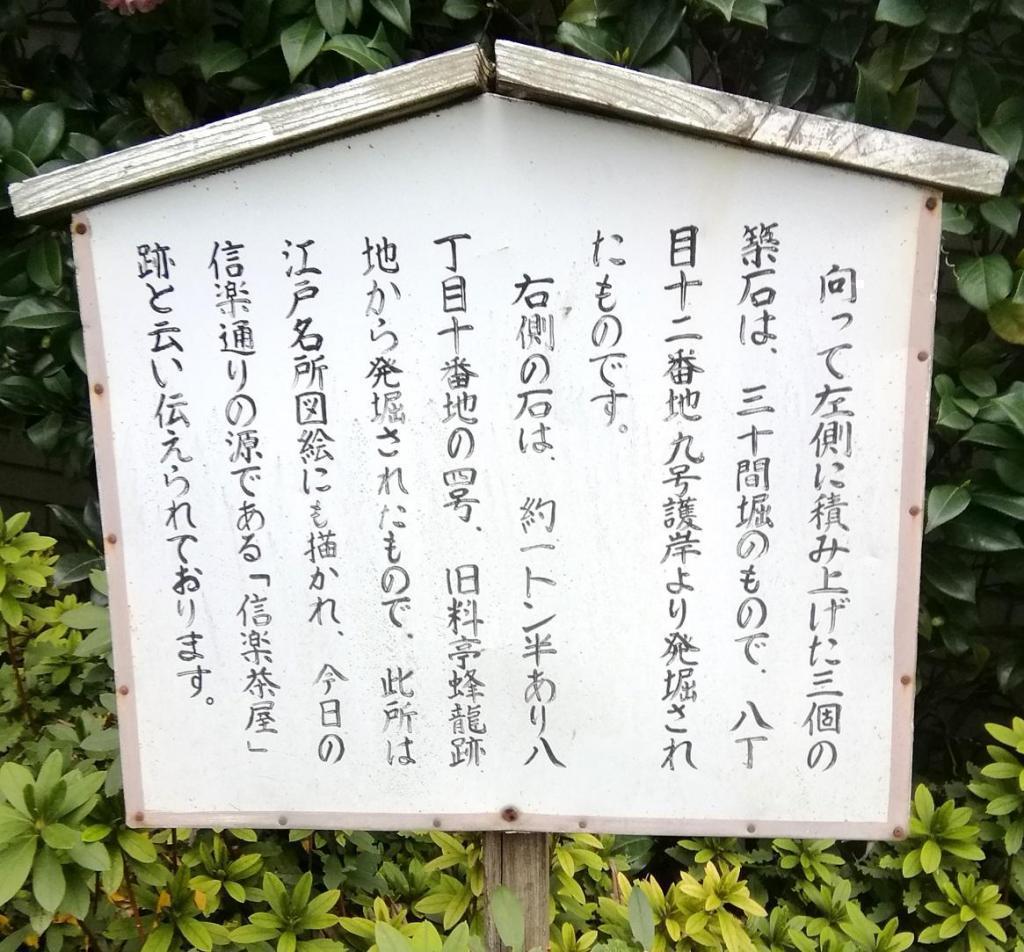 向って左側に積み上げた三個の
築石は、三十間堀のもので、八丁
目十二番地九号護岸より発堀され
たものです。
右側の石は、約一トン半あり八
丁目十番地の四号、旧料亭蜂龍跡
地から発堀されたもので、此所は
江戸名所図絵にも描かれ、今日の
信楽通りの源である「信楽茶屋」
跡と云い伝えられております。